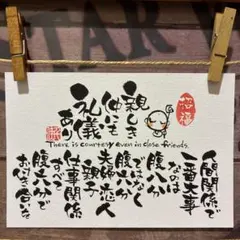 親しき
仲にも
礼儀
あり
招福
There is courtesy even in close friends.
人間関係で
一番大事
なのは
腹八分
ではなく
腹六分
夫婦恋人
親子
仕事関係
すべて
腹六分で
お付き合いを